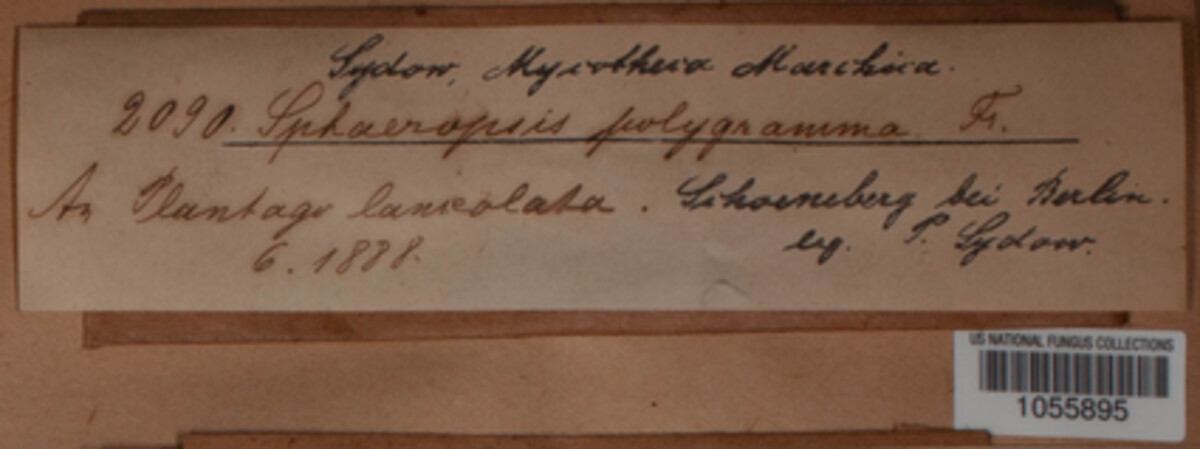 Sydow, Mycotheca Marchica.
2090. Sphaeropsis polygramma Fr.
An Plantago lanceolata. Schoeneberg bei Berlin.
6. 1888. leg. P. Sydow.
US NATIONAL FUNGUS COLLECTIONS
1055895